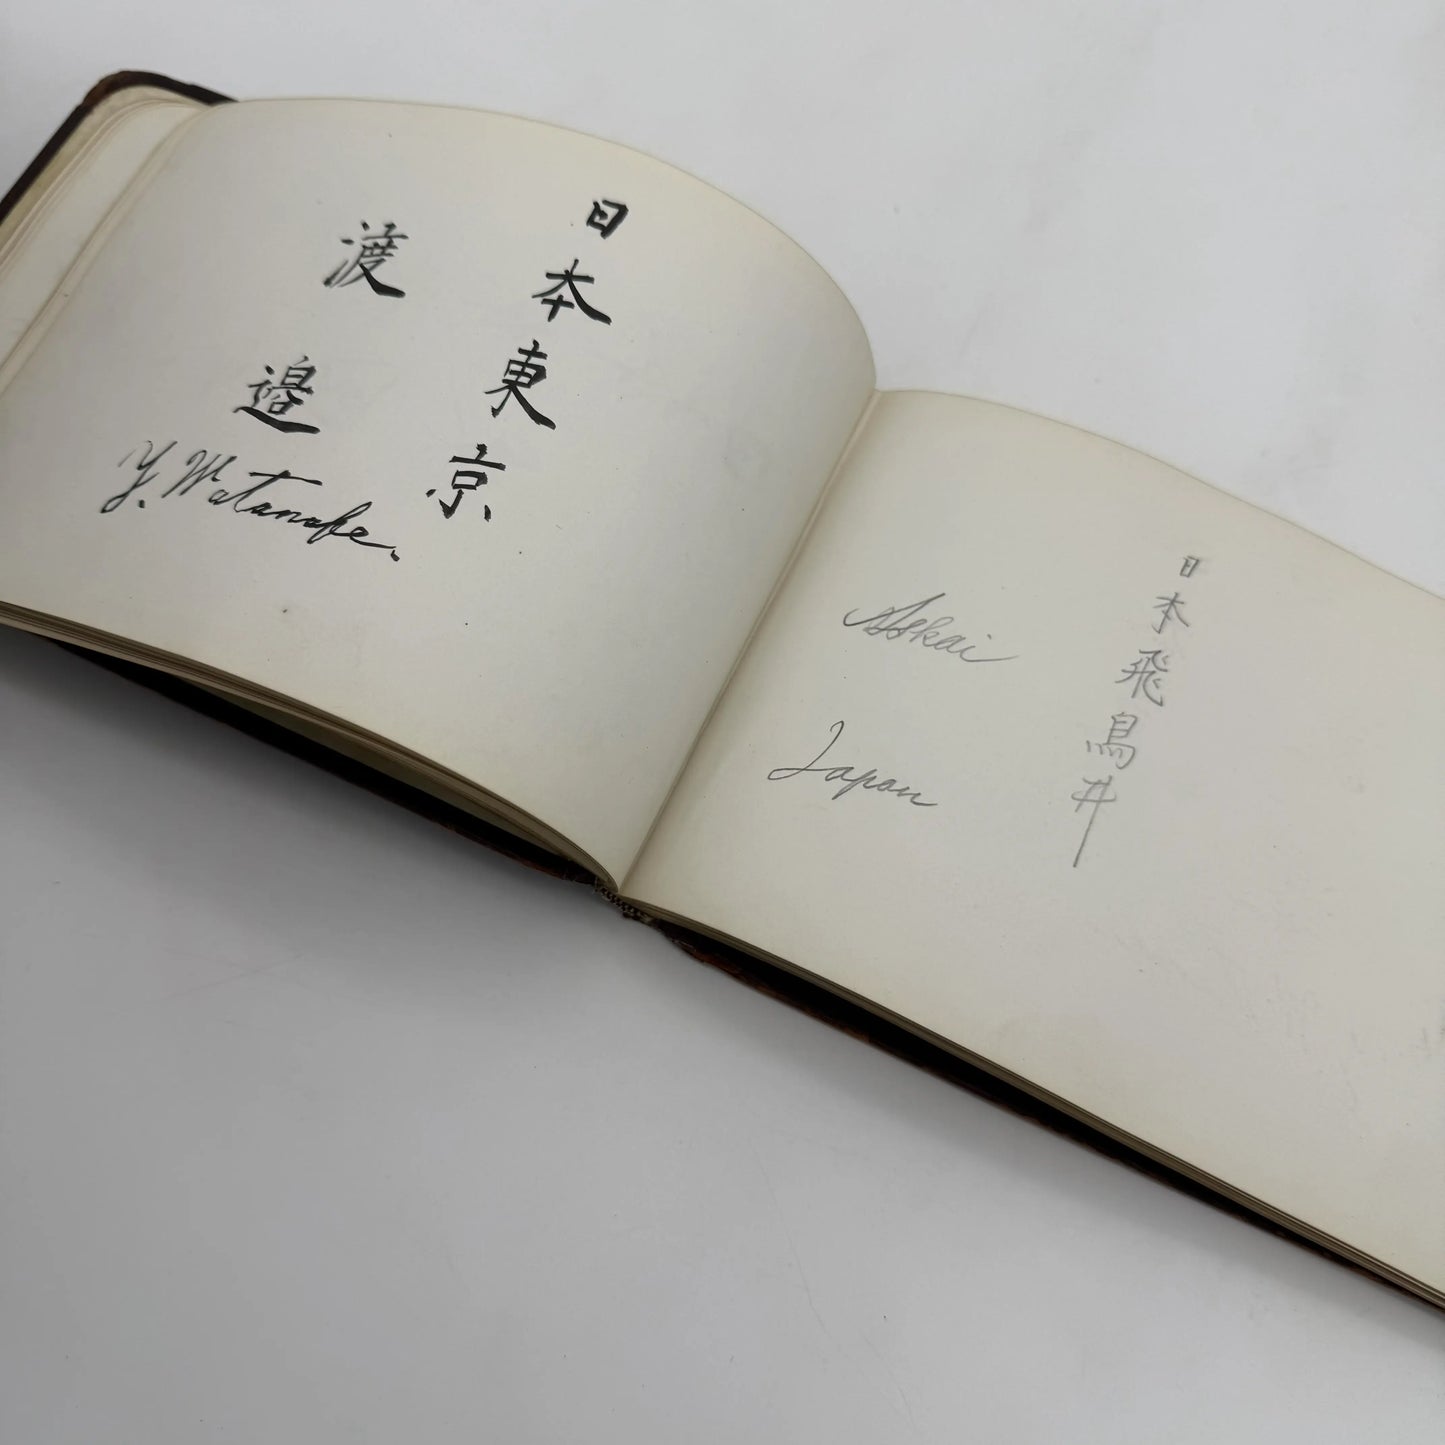 日本東京
渡邉
Y. Watanabe.
日本飛鳥井
Japan